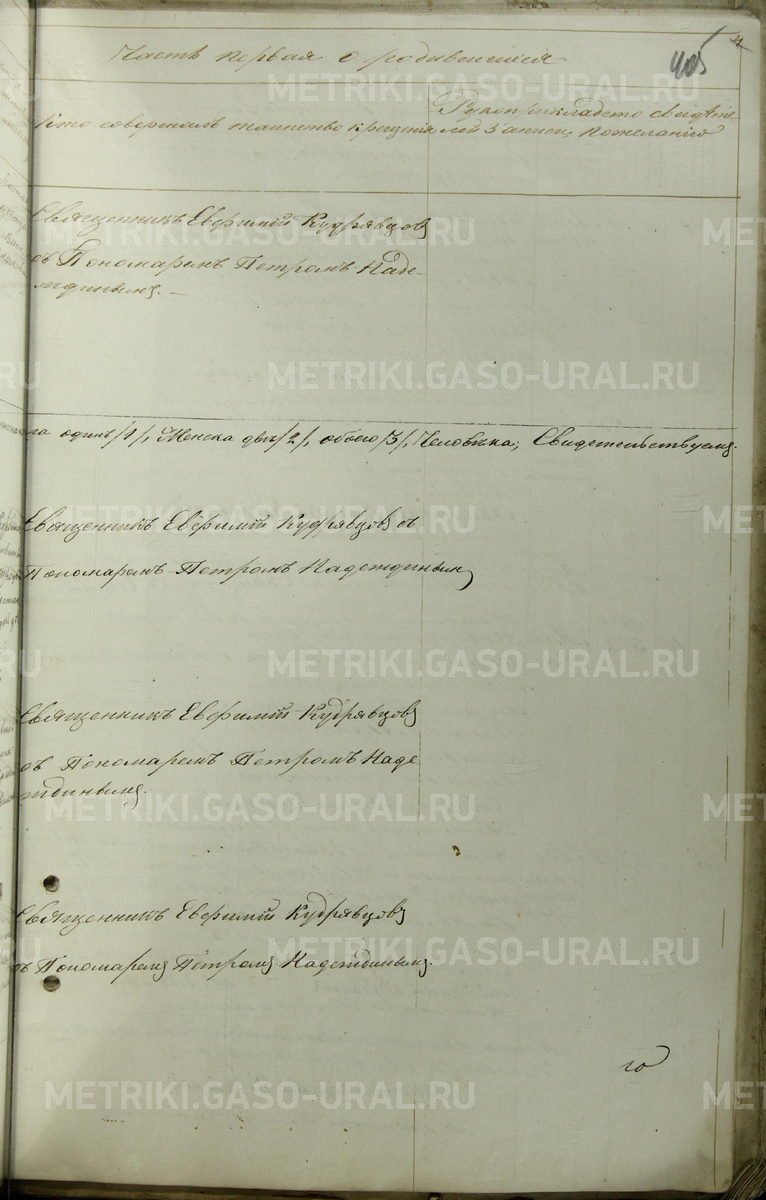 Часть первая о родившихся
405
4
Кто совершалъ таинство крещенія
Рукоприкладство свидѣте-
лей записи по желанію
Священникъ Евфимій Кудрявцовъ
съ Пономаремъ Петромъ Наде-
ждинымъ. —
METRIKI.GASO-URAL.RU
ла одинъ /1/, Женска двѣ /2/, обоего /3/, Человѣка, Свидетельствуемъ.
Священникъ Евфимій Кудрявцовъ съ
Пономаремъ Петромъ Надеждинымъ
METRIKI.GASO-URAL.RU
Священникъ Евфимій Кудрявцовъ
съ Пономаремъ Петромъ Наде
ждинымъ.
METRIKI.GASO-URAL.RU
Священникъ Евфимій Кудрявцовъ
съ Пономаремъ Петромъ Надеждинымъ.
METRIKI.GASO-URAL.RU
го
METRIKI.GASO-URAL.RU